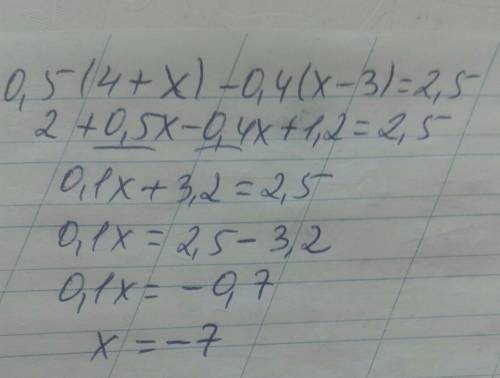 0,5(4+x)-0,4(x-3)=2,5
2+0,5x-0,4x+1,2=2,5
0,1x+3,2=2,5
0,1x=2,5-3,2
0,1x=-0,7
x=-7